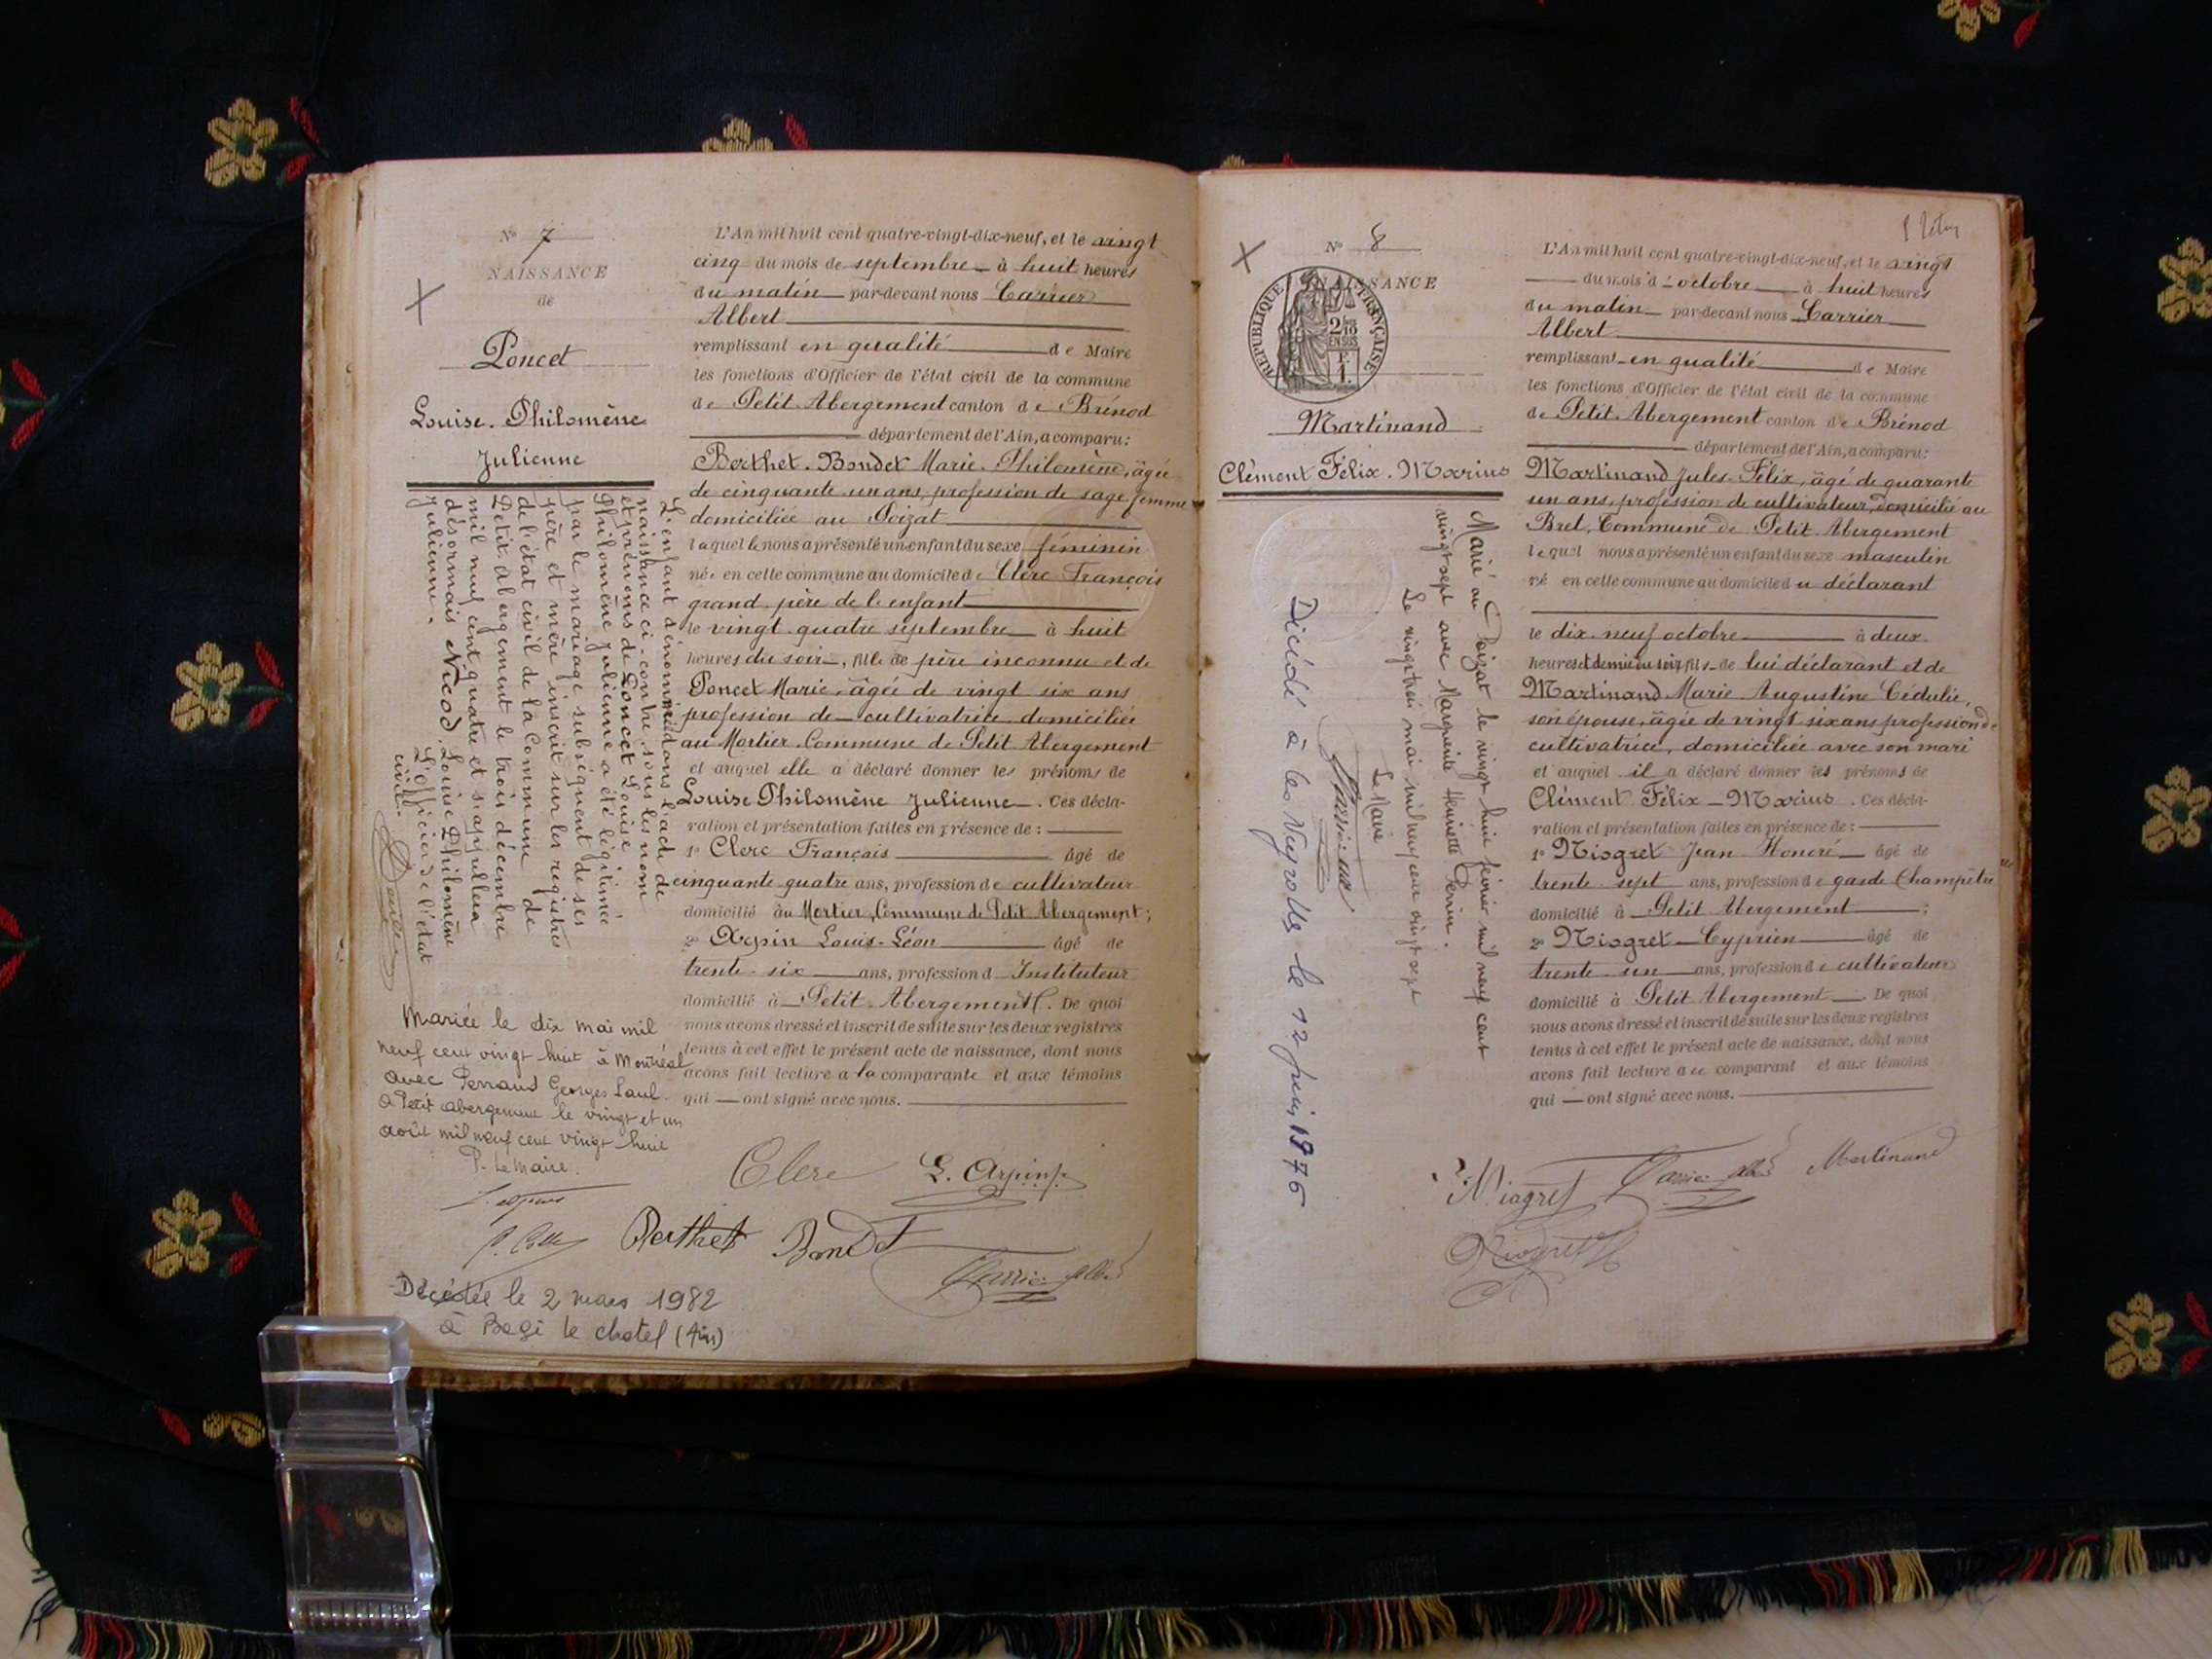 N° 7
NAISSANCE
de
Poncet
Louise. Philomène
Julienne
L'enfant dénommé dans l'acte de
naissance ci-contre, sous les nom
et prénoms de Poncet Louise
Philomène Julienne a été légitimée
par le mariage subséquent de ses
père et mère inscrit sur les registres
de l'état civil de la Commune de
Petit Abergement le trois décembre
mil neuf cent quatre et s'appellera
désormais Nicod, Louise Philomène
Julienne.
L'officier de l'état
civil.
Mariée le dix mai mil
neuf cent vingt huit à Montréal
avec Perraud Georges Paul.
A Petit abergement le vingt et un
août mil neuf cent vingt huit
P. Le Maire.
Décédée le 2 mars 1982
à Bagé le chatel (Ain)
L'An mil huit cent quatre-vingt-dix-neuf, et le vingt
cinq du mois de septembre à huit heures
du matin par-devant nous Carrier
Albert
remplissant en qualité de Maire
les fonctions d'Officier de l'état civil de la commune
de Petit. Abergement canton de Brénod
département de l'Ain, a comparu:
Berthet. Bondet Marie. Philomène, âgée
de cinquante un ans, profession de sage femme
domiciliée au Poizat
laquelle nous a présenté un enfant du sexe féminin
née en cette commune au domicile de Clerc François
grand. père de l'enfant
le vingt. quatre septembre à huit
heures du soir, fille de père inconnu et de
Poncet Marie, âgée de vingt six ans
profession de cultivatrice domiciliée
au Mortier Commune de Petit Abergement
et auquel elle a déclaré donner les prénoms de
Louise Philomène Julienne. Ces décla-
ration et présentation faites en présence de:
1° Clerc François âgé de
cinquante quatre ans, profession de cultivateur
domicilié au Mortier, Commune de Petit Abergement;
2° Arpin Louis-Léon âgé de
trente-six ans, profession d Instituteur
domicilié à Petit. Abergement. De quoi
nous avons dressé et inscrit de suite sur les deux registres
tenus à cet effet le présent acte de naissance, dont nous
avons fait lecture a la comparante et aux témoins
qui ont signé avec nous.
Clerc L. Arpin
Berthet Bondet
Carrier Albert
N° 8
NAISSANCE
REPUBLIQUE FRANÇAISE
2/10
EN SUS
F.
1.
Martinand
Clément Félix. Marius
Marié au Poizat le vingt huit février mil neuf cent
vingt-sept avec Marguerite Henriette Perrin.
Le vingt trois mai mil neuf cent vingt sept
Le Maire
Décédé à les Neyrolles le 12 juin 1976
L'An mil huit cent quatre-vingt-dix-neuf, et le vingt
du mois d'octobre à huit heures
du matin par-devant nous Carrier
Albert
remplissant en qualité de Maire
les fonctions d'Officier de l'état civil de la commune
de Petit. Abergement canton de Brénod
département de l'Ain, a comparu:
Martinand Jules. Félix, âgé de quarante
un ans, profession de cultivateur, domicilié au
Bret, Commune de Petit Abergement
lequel nous a présenté un enfant du sexe masculin
né en cette commune au domicile du déclarant
le dix. neuf octobre à deux
heures et demie du soir fils de lui déclarant et de
Martinand Marie Augustine Cédulie,
son épouse, âgée de vingt six ans profession de
cultivatrice, domiciliée avec son mari
et auquel il a déclaré donner les prénoms de
Clément Félix Marius. Ces décla-
ration et présentation faites en présence de:
1° Niogret Jean Honoré âgé de
trente. sept ans, profession de garde Champêtre
domicilié à Petit Abergement;
2° Niogret Cyprien âgé de
trente. un ans, profession de cultivateur
domicilié à Petit Abergement. De quoi
nous avons dressé et inscrit de suite sur les deux registres
tenus à cet effet le présent acte de naissance, dont nous
avons fait lecture au comparant et aux témoins
qui ont signé avec nous.
Niogret Carrier Albert Martinand
Niogret